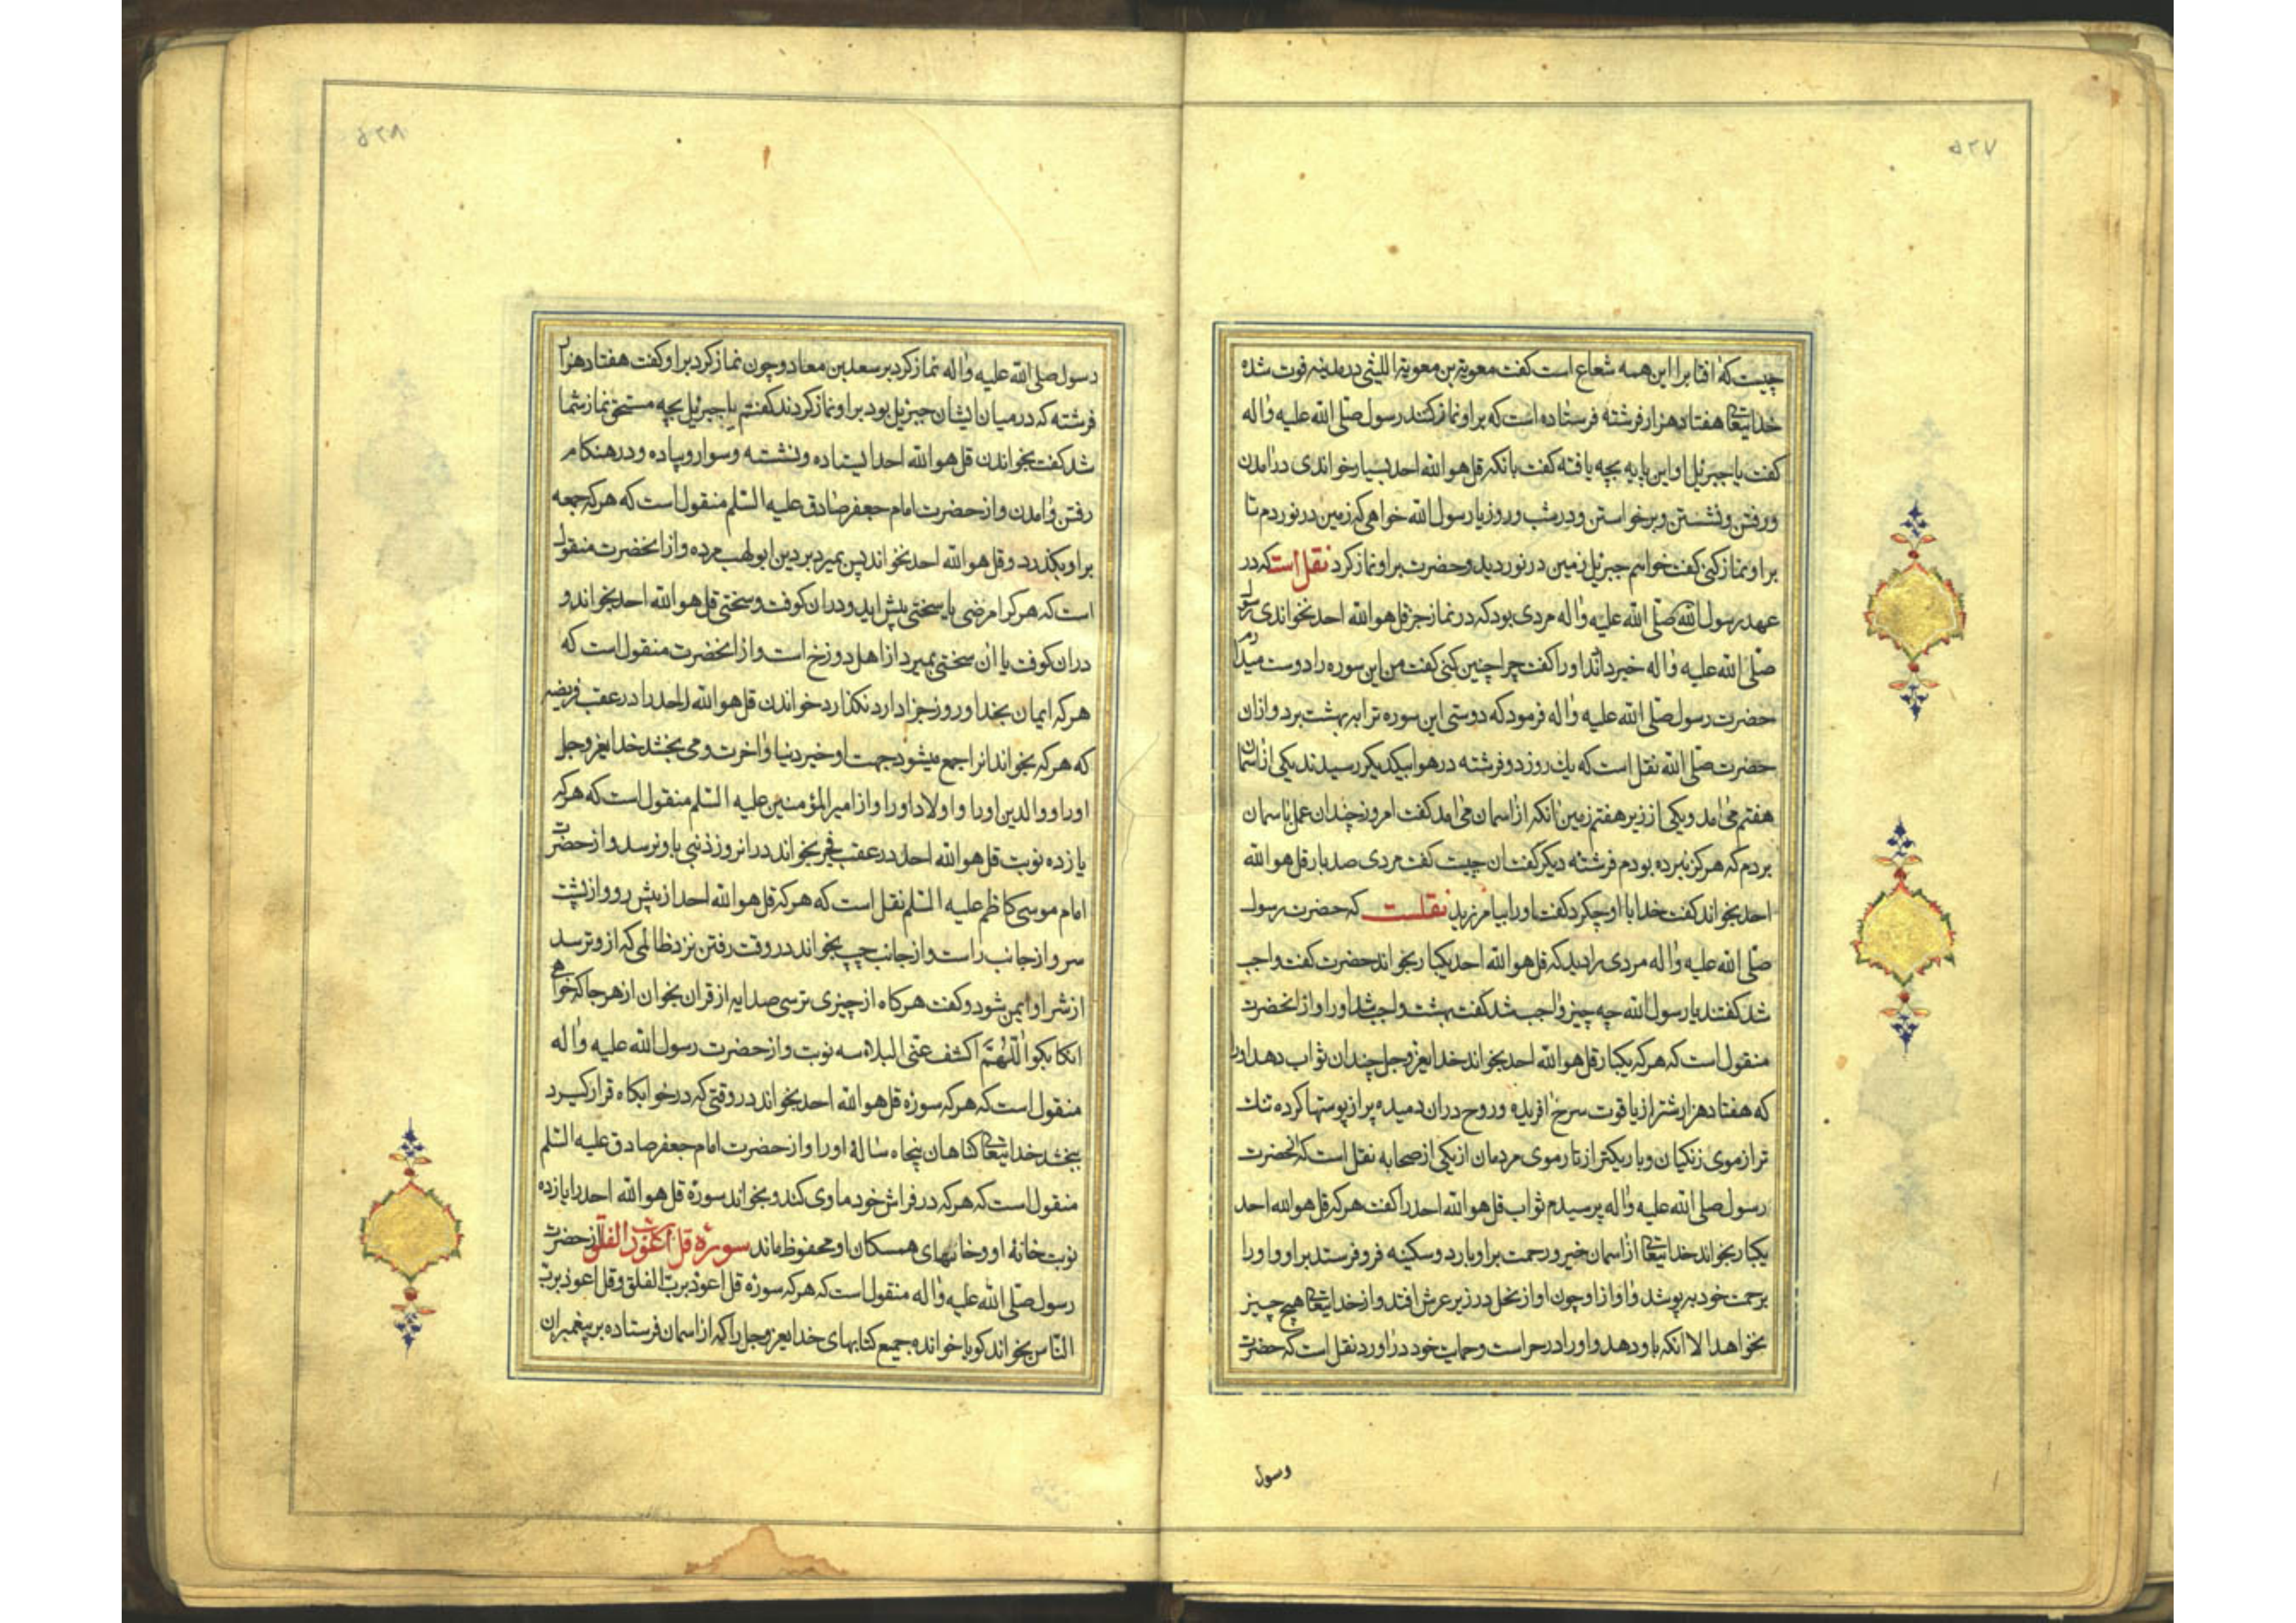 ۵۲۷
چیست که افتابرا این همه شعاع است کفت معویة بن معویة اللیثی درمدینه فوت شده
خدایتعالی هفتاد هزار فرشته فرستاده است که براو نماز کنند رسول صلی الله علیه واله
کفت یا جبرئیل او این پایه بچه یافته کفت بانکه قل هو الله احد بسیار خواندی درامدن
ورفتن ونشستن وبرخواستن ودرشب وروز یا رسول الله خواهی که زمین درنوردم تا
براو نماز کنی کفت خواهم جبرئیل زمین درنوردید وحضرت براو نماز کرد نقل است که در
عهد رسول الله صلی الله علیه واله مردی بود که در نماز جز قل هو الله احد نخواندی
صلی الله علیه واله خبر دادند اورا کفت چرا چنین کنی کفت من این سوره را دوست میدارم
حضرت رسول صلی الله علیه واله فرمود که دوستی این سوره ترا به بهشت برد وازان
حضرت صلی الله نقل است که یك روز دو فرشته در هوا بیکدیکر رسیدند یکی از اسمان
هفتم می امد ویکی از زیر هفتم زمین انکه از اسمان می امد کفت امروز چندان عمل باسمان
بردم که هرکز نبرده بودم فرشته دیکر کفت ان چیست کفت مردی صد بار قل هو الله
احد بخواند کفت خدا با او چکرد کفت اورا بیامرزید نقلست که حضرت رسول
صلی الله علیه واله مردی را دید که قل هو الله احد یکبار بخواند حضرت کفت واجب
شد کفتند یا رسول الله چه چیز واجب شد کفت بهشت واجب شد اورا وازانحضرت
منقول است که هرکه یکبار قل هو الله احد بخواند خدایعزوجل چندان ثواب دهد اورا
که هفتاد هزار شتر از یاقوت سرخ افریده وروح دران دمیده پر از پوستها کرده تنك
تر از موی زنکیان وباریکتر از تار موی مردمان از یکی از صحابه نقل است که از حضرت
رسول صلی الله علیه واله پرسیدم ثواب قل هو الله احد را کفت هرکه قل هو الله احد
یکبار بخواند خدایتعالی از اسمان خیر ورحمت براو بارد وسکینه فرو فرستد براو واورا
برحمت خود بپوشد واواز او چون اواز نحل در زیر عرش افتد واز خدایتعالی هیچ چیز
نخواهد الا انکه باو دهد واورا در حراست وحمایت خود دراورد نقل است که حضرت
رسول
۵۲۸
رسول صلی الله علیه واله نماز کرد بر سعد بن معاد وچون نماز کرد براو کفت هفتاد هزار
فرشته که در میان ایشان جبرئیل بود براو نماز کردند کفتم یا جبرئیل بچه مستحق نماز شما
شد کفت بخواندن قل هو الله احد ایستاده ونشسته وسوار وپیاده ودر هنکام
رفتن وامدن واز حضرت امام جعفر صادق علیه السلم منقول است که هرکه جمعه
براو بکذرد وقل هو الله احد نخواند پس بمیرد بر دین ابولهب مرده وازانحضرت منقول
است که هرکرا مرضی یا سختی پیش اید ودران کوفت وسختی قل هو الله احد نخواند و
دران کوفت یا ان سختی بمیرد از اهل دوزخ است وازانحضرت منقول است که
هرکه ایمان بخدا وروز جزا دارد نکذارد خواندن قل هو الله احد را در عقب فریضه
که هرکه بخواند انرا جمع میشود جهت او خیر دنیا واخرت ومی بخشد خدایعزوجل
اورا ووالدین اورا واولاد اورا واز امیر المؤمنین علیه السلم منقول است که هرکه
یازده نوبت قل هو الله احد در عقب فجر بخواند درانروز ذنبی باو نرسد واز حضرت
امام موسی کاظم علیه السلم نقل است که هرکه قل هو الله احد از پیش رو واز پشت
سر واز جانب راست واز جانب چپ بخواند در وقت رفتن نزد ظالمی که ازو ترسد
از شر او ایمن شود وکفت هرکاه از چیزی ترسی صد ایه از قران بخوان از هر جا که خواهی
انکا بکو اللهم اکشف عنی البلاء سه نوبت واز حضرت رسول الله علیه واله
منقول است که هرکه سورۀ قل هو الله احد بخواند در وقتی که در خوابکاه قرار کیرد
ببخشد خدایتعالی کناهان پنجاه سالۀ اورا واز حضرت امام جعفر صادق علیه السلم
منقول است که هرکه در فراش خود ماوی کند وبخواند سورۀ قل هو الله احد را یازده
نوبت خانۀ او وخانهای همسکان او محفوظ ماند سورۀ قل اعوذ برب الفلق از حضرت
رسول صلی الله علیه واله منقول است که هرکه سورۀ قل اعوذ برب الفلق وقل اعوذ برب
الناس بخواند کویا خوانده جمیع کتابهای خدایعزوجل را که از اسمان فرستاده بر پیغمبران